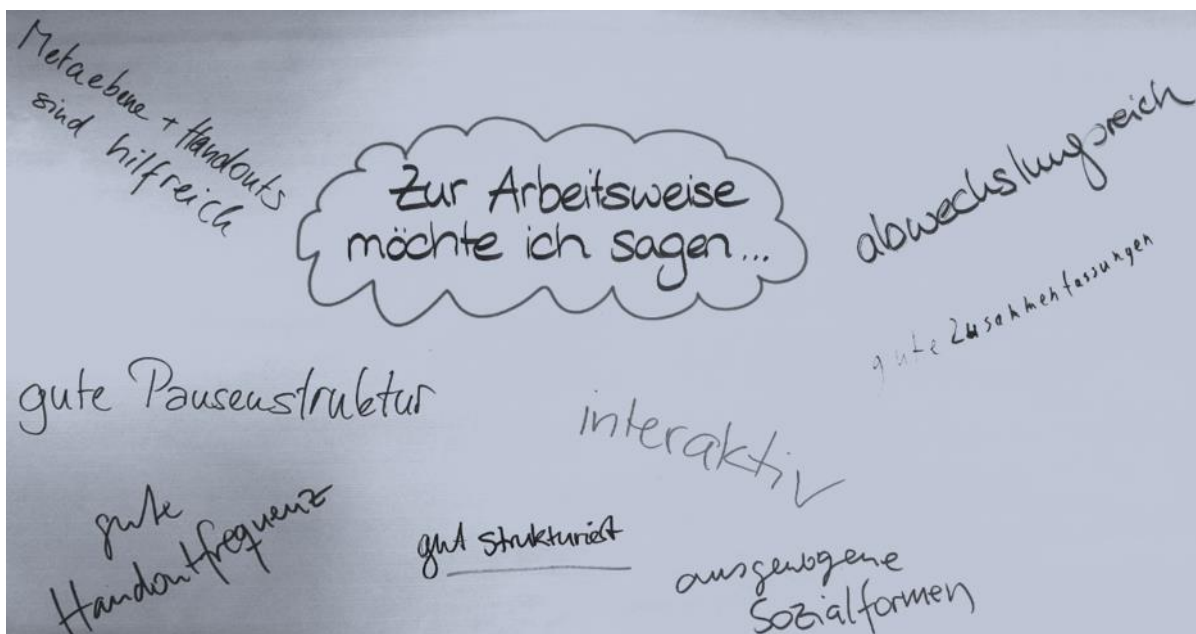 Metaebene + Handouts
sind hilfreich
Zur Arbeitsweise
möchte ich sagen...
abwechslungsreich
gute Zusammenfassungen
gute Pausenstruktur
interaktiv
gute
Handoutfrequenz
gut strukturiert
ausgewogene
Sozialformen